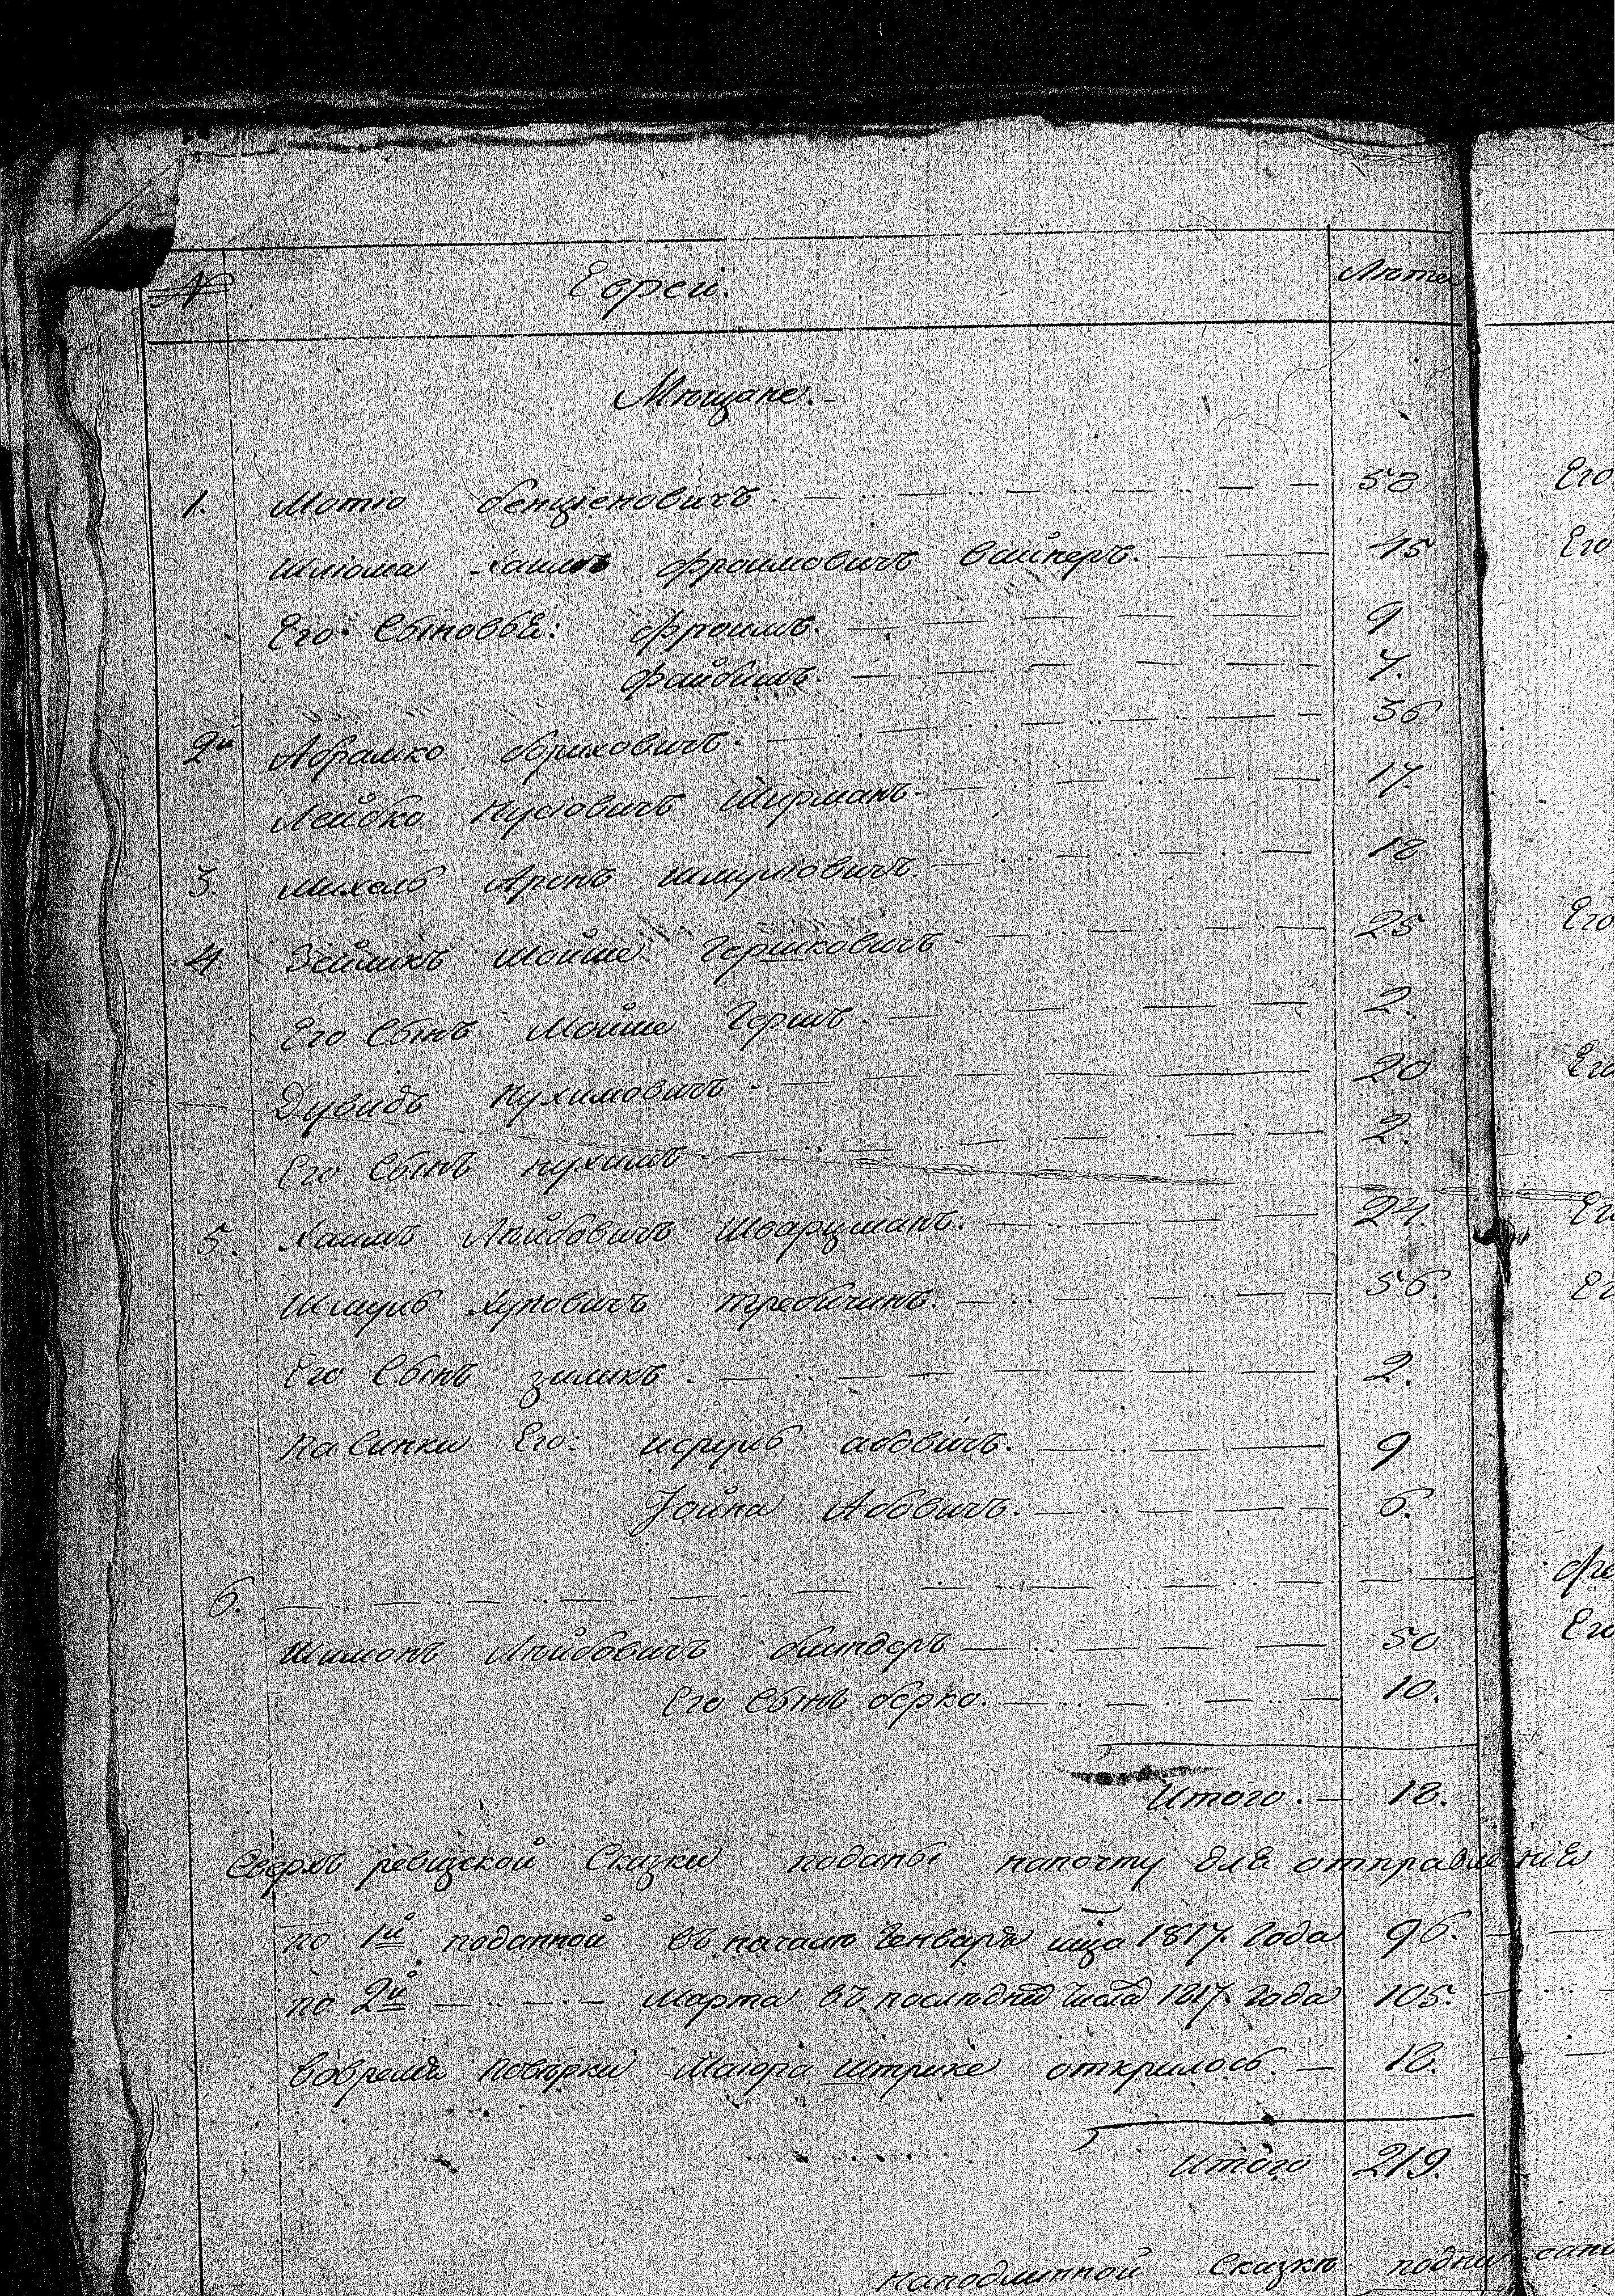 № Евреи. Лѣта
Мѣщане.
1. Мотіо бенціеновичъ. 58
Шліома Хаимъ Фроимовичъ Вайнеръ. 45
Его Сыновья: Фроимъ. 9
Файбишъ. 7.
2й Абрамко бориховичъ. 36
Лейбко Нусіовичъ Ширманъ. 17.
3. Михель Аронъ шмуліовичъ. 18
4. Зейликъ Мойше Гершковичъ. 25
Его Сынъ Мойше Гершъ. 2.
Дувидъ Нухимовичъ. 20
Его Сынъ нухимъ. 2.
5. Хаимъ Лѣйбовичъ Шварцманъ. 24.
Шмуль Хуновичъ требичинъ. 56.
Его Сынъ зиликъ. 2.
Пасинки Его: исруль абовичъ. 9
Іойна Абовичъ. 6.
6.
Шимонъ Лѣйбовичъ биндеръ 50
Его Сынъ берко. 10.
Итого. 18.
Сверхъ ревизской Сказки поданы на почту для отправления
по 1й поданной въ начале Генваря мца 1817. Года 96.
по 2й Марта въ последни числа 1817. Года 105.
вовремя Повѣрки Маіора Штрике открилось. 18.
Итого 219.
Наподлинной Сказкѣ подпи
Его
Его
Его
Его